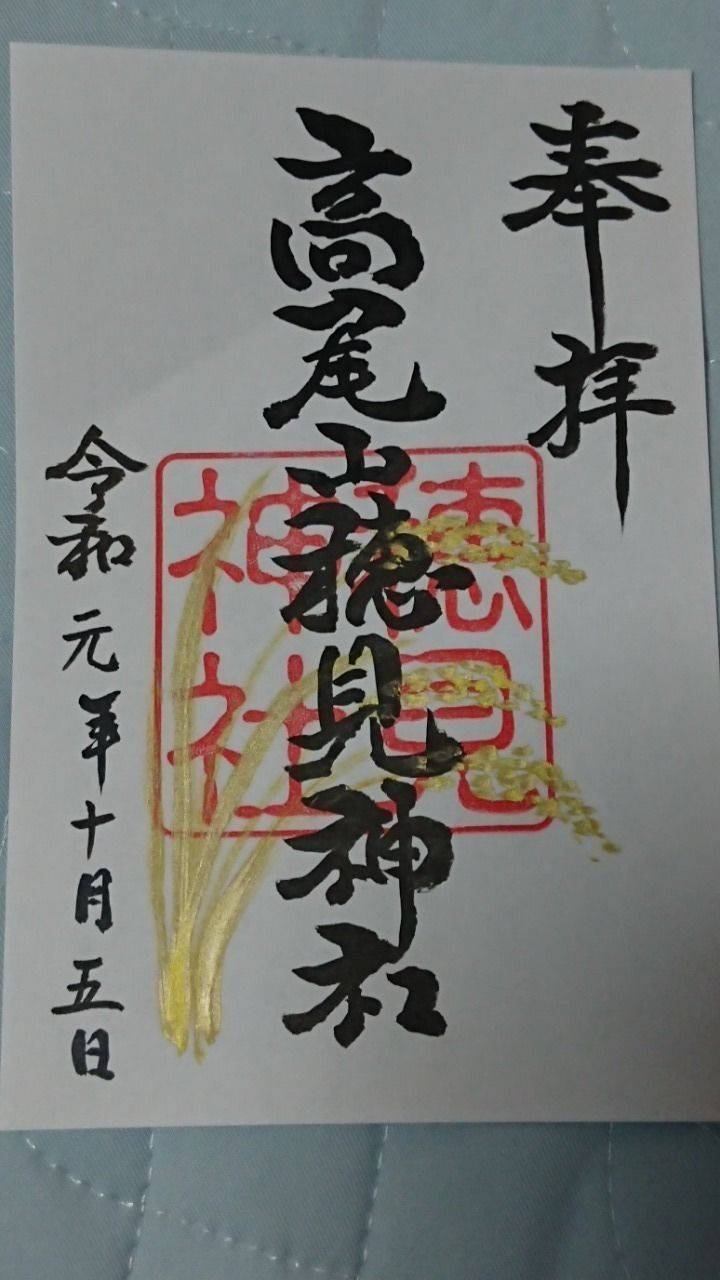 奉拝
高尾山穂見神社
穂見神社
令和元年十月五日